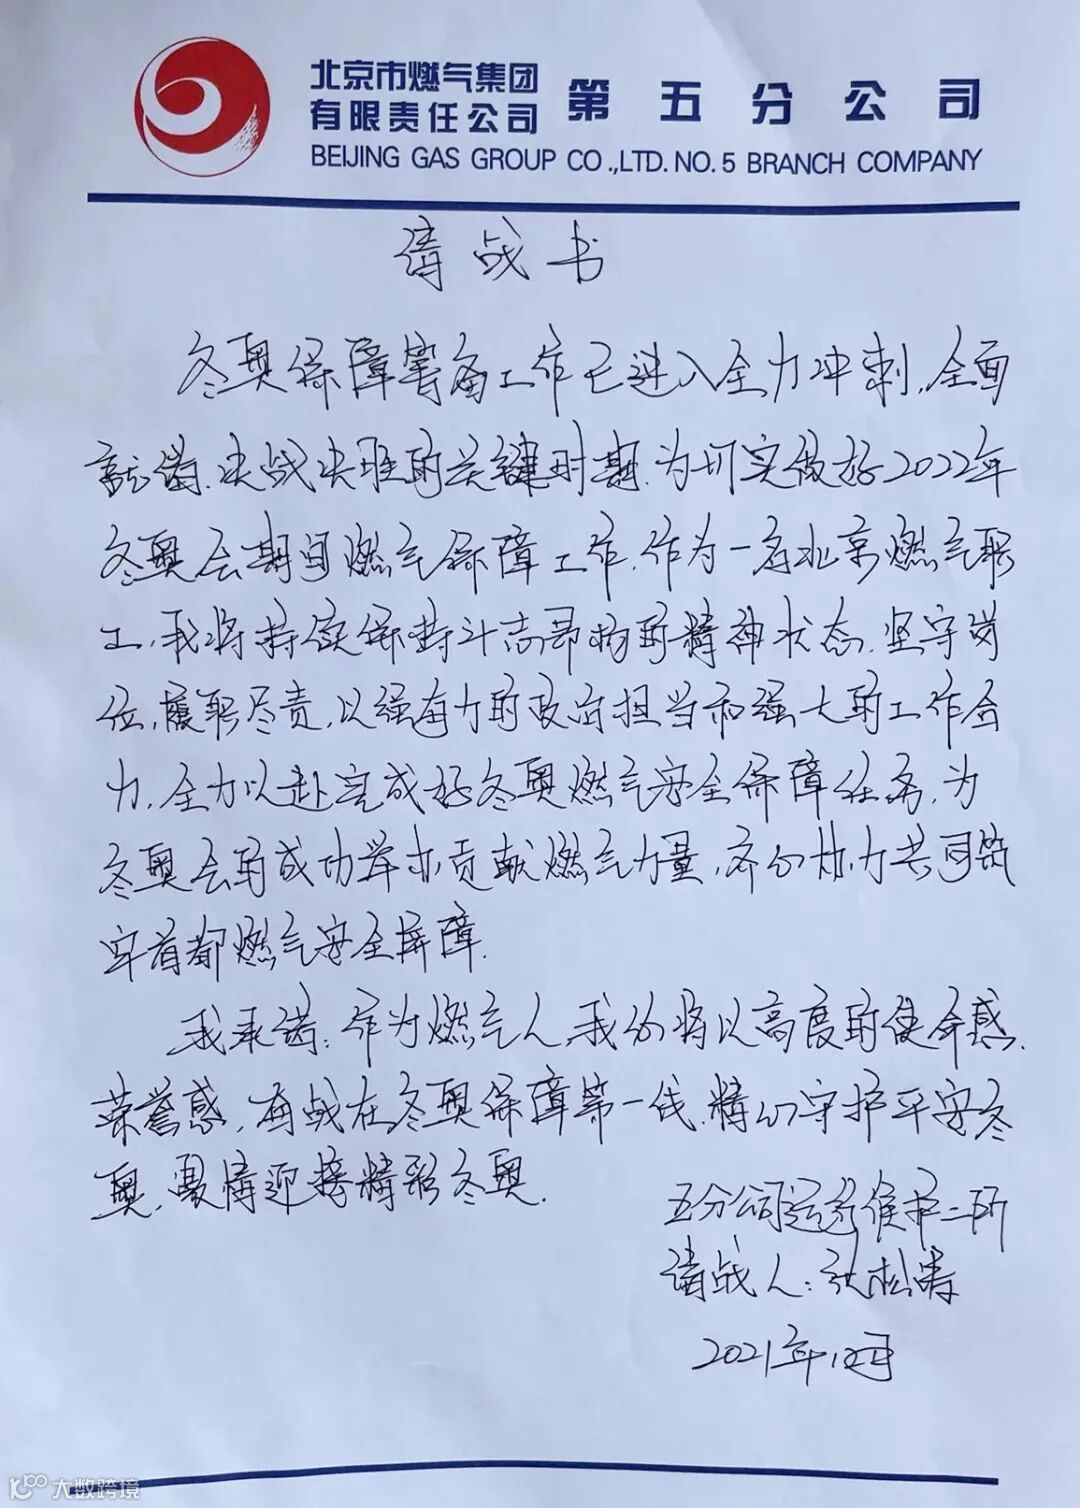 北京市燃气集团
有限责任公司 第五分公司
BEIJING GAS GROUP CO.,LTD. NO. 5 BRANCH COMPANY
请战书
冬奥保障筹备工作已进入全力冲刺,全面
就绪、决战决胜的关键时期,为切实做好2022年
冬奥会期间燃气保障工作,作为一名北京燃气职
工,我将持续保持斗志昂扬的精神状态,坚守岗
位,履职尽责,以强有力的政治担当和强大的工作合
力,全力以赴完成好冬奥燃气安全保障任务,为
冬奥会的成功举办贡献燃气力量,齐心协力共同筑
牢首都燃气安全屏障.
我承诺:作为燃气人,我们将以高度的使命感、
荣誉感,奋战在冬奥保障第一线,精心守护平安冬
奥,豪情迎接精彩冬奥.
五分公司运行维护二所
请战人:张松涛
2021年12月
大数跨境